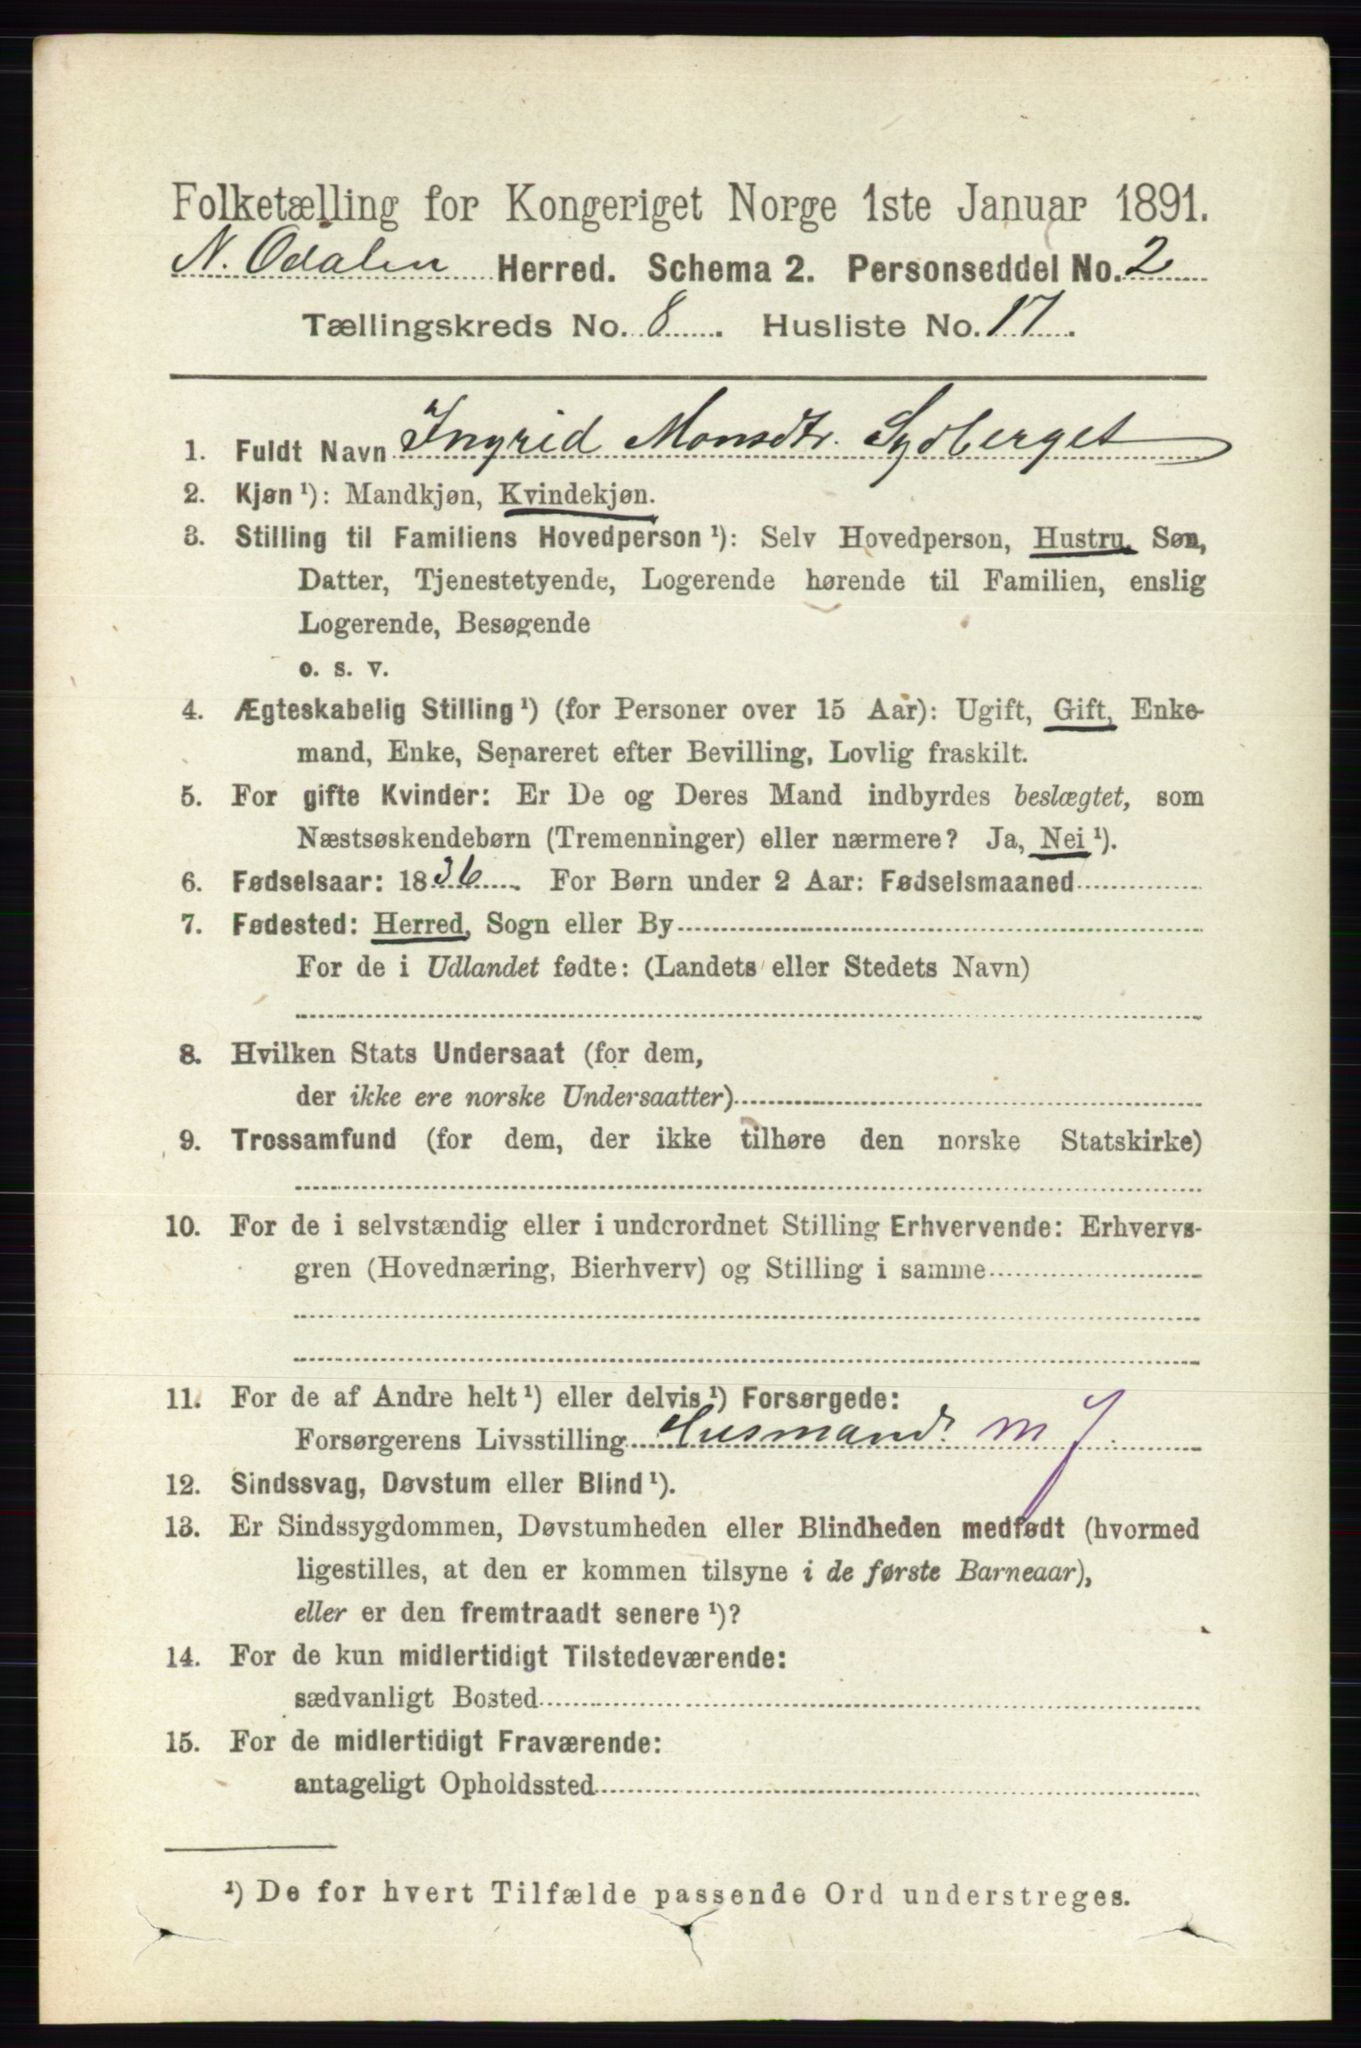 Folketælling for Kongeriget Norge 1ste Januar 1891.
N. Odalen Herred. Schema 2. Personseddel No. 2
Tællingskreds No. 8. Husliste No. 17.
1. Fuldt Navn Ingrid Monsdtr. Sydberget
2. Kjøn ¹): Mandkjøn, Kvindekjøn.
3. Stilling til Familiens Hovedperson ¹): Selv Hovedperson, Hustru, Søn,
Datter, Tjenestetyende, Logerende hørende til Familien, enslig
Logerende, Besøgende
o. s. v.
4. Ægteskabelig Stilling ¹) (for Personer over 15 Aar): Ugift, Gift, Enke-
mand, Enke, Separeret efter Bevilling, Lovlig fraskilt.
5. For gifte Kvinder: Er De og Deres Mand indbyrdes beslægtet, som
Næstsøskendebørn (Tremenninger) eller nærmere? Ja, Nei ¹).
6. Fødselsaar: 1836. For Børn under 2 Aar: Fødselsmaaned
7. Fødested: Herred, Sogn eller By
For de i Udlandet fødte: (Landets eller Stedets Navn)
8. Hvilken Stats Undersaat (for dem,
der ikke ere norske Undersaatter)
9. Trossamfund (for dem, der ikke tilhøre den norske Statskirke)
10. For de i selvstændig eller i underordnet Stilling Erhvervende: Erhvervs-
gren (Hovednæring, Bierhverv) og Stilling i samme
11. For de af Andre helt ¹) eller delvis ¹) Forsørgede:
Forsørgerens Livsstilling Husmand. m J
12. Sindssvag, Døvstum eller Blind ¹).
13. Er Sindssygdommen, Døvstumheden eller Blindheden medfødt (hvormed
ligestilles, at den er kommen tilsyne i de første Barneaar),
eller er den fremtraadt senere ¹)?
14. For de kun midlertidigt Tilstedeværende:
sædvanligt Bosted
15. For de midlertidigt Fraværende:
antageligt Opholdssted
¹) De for hvert Tilfælde passende Ord understreges.